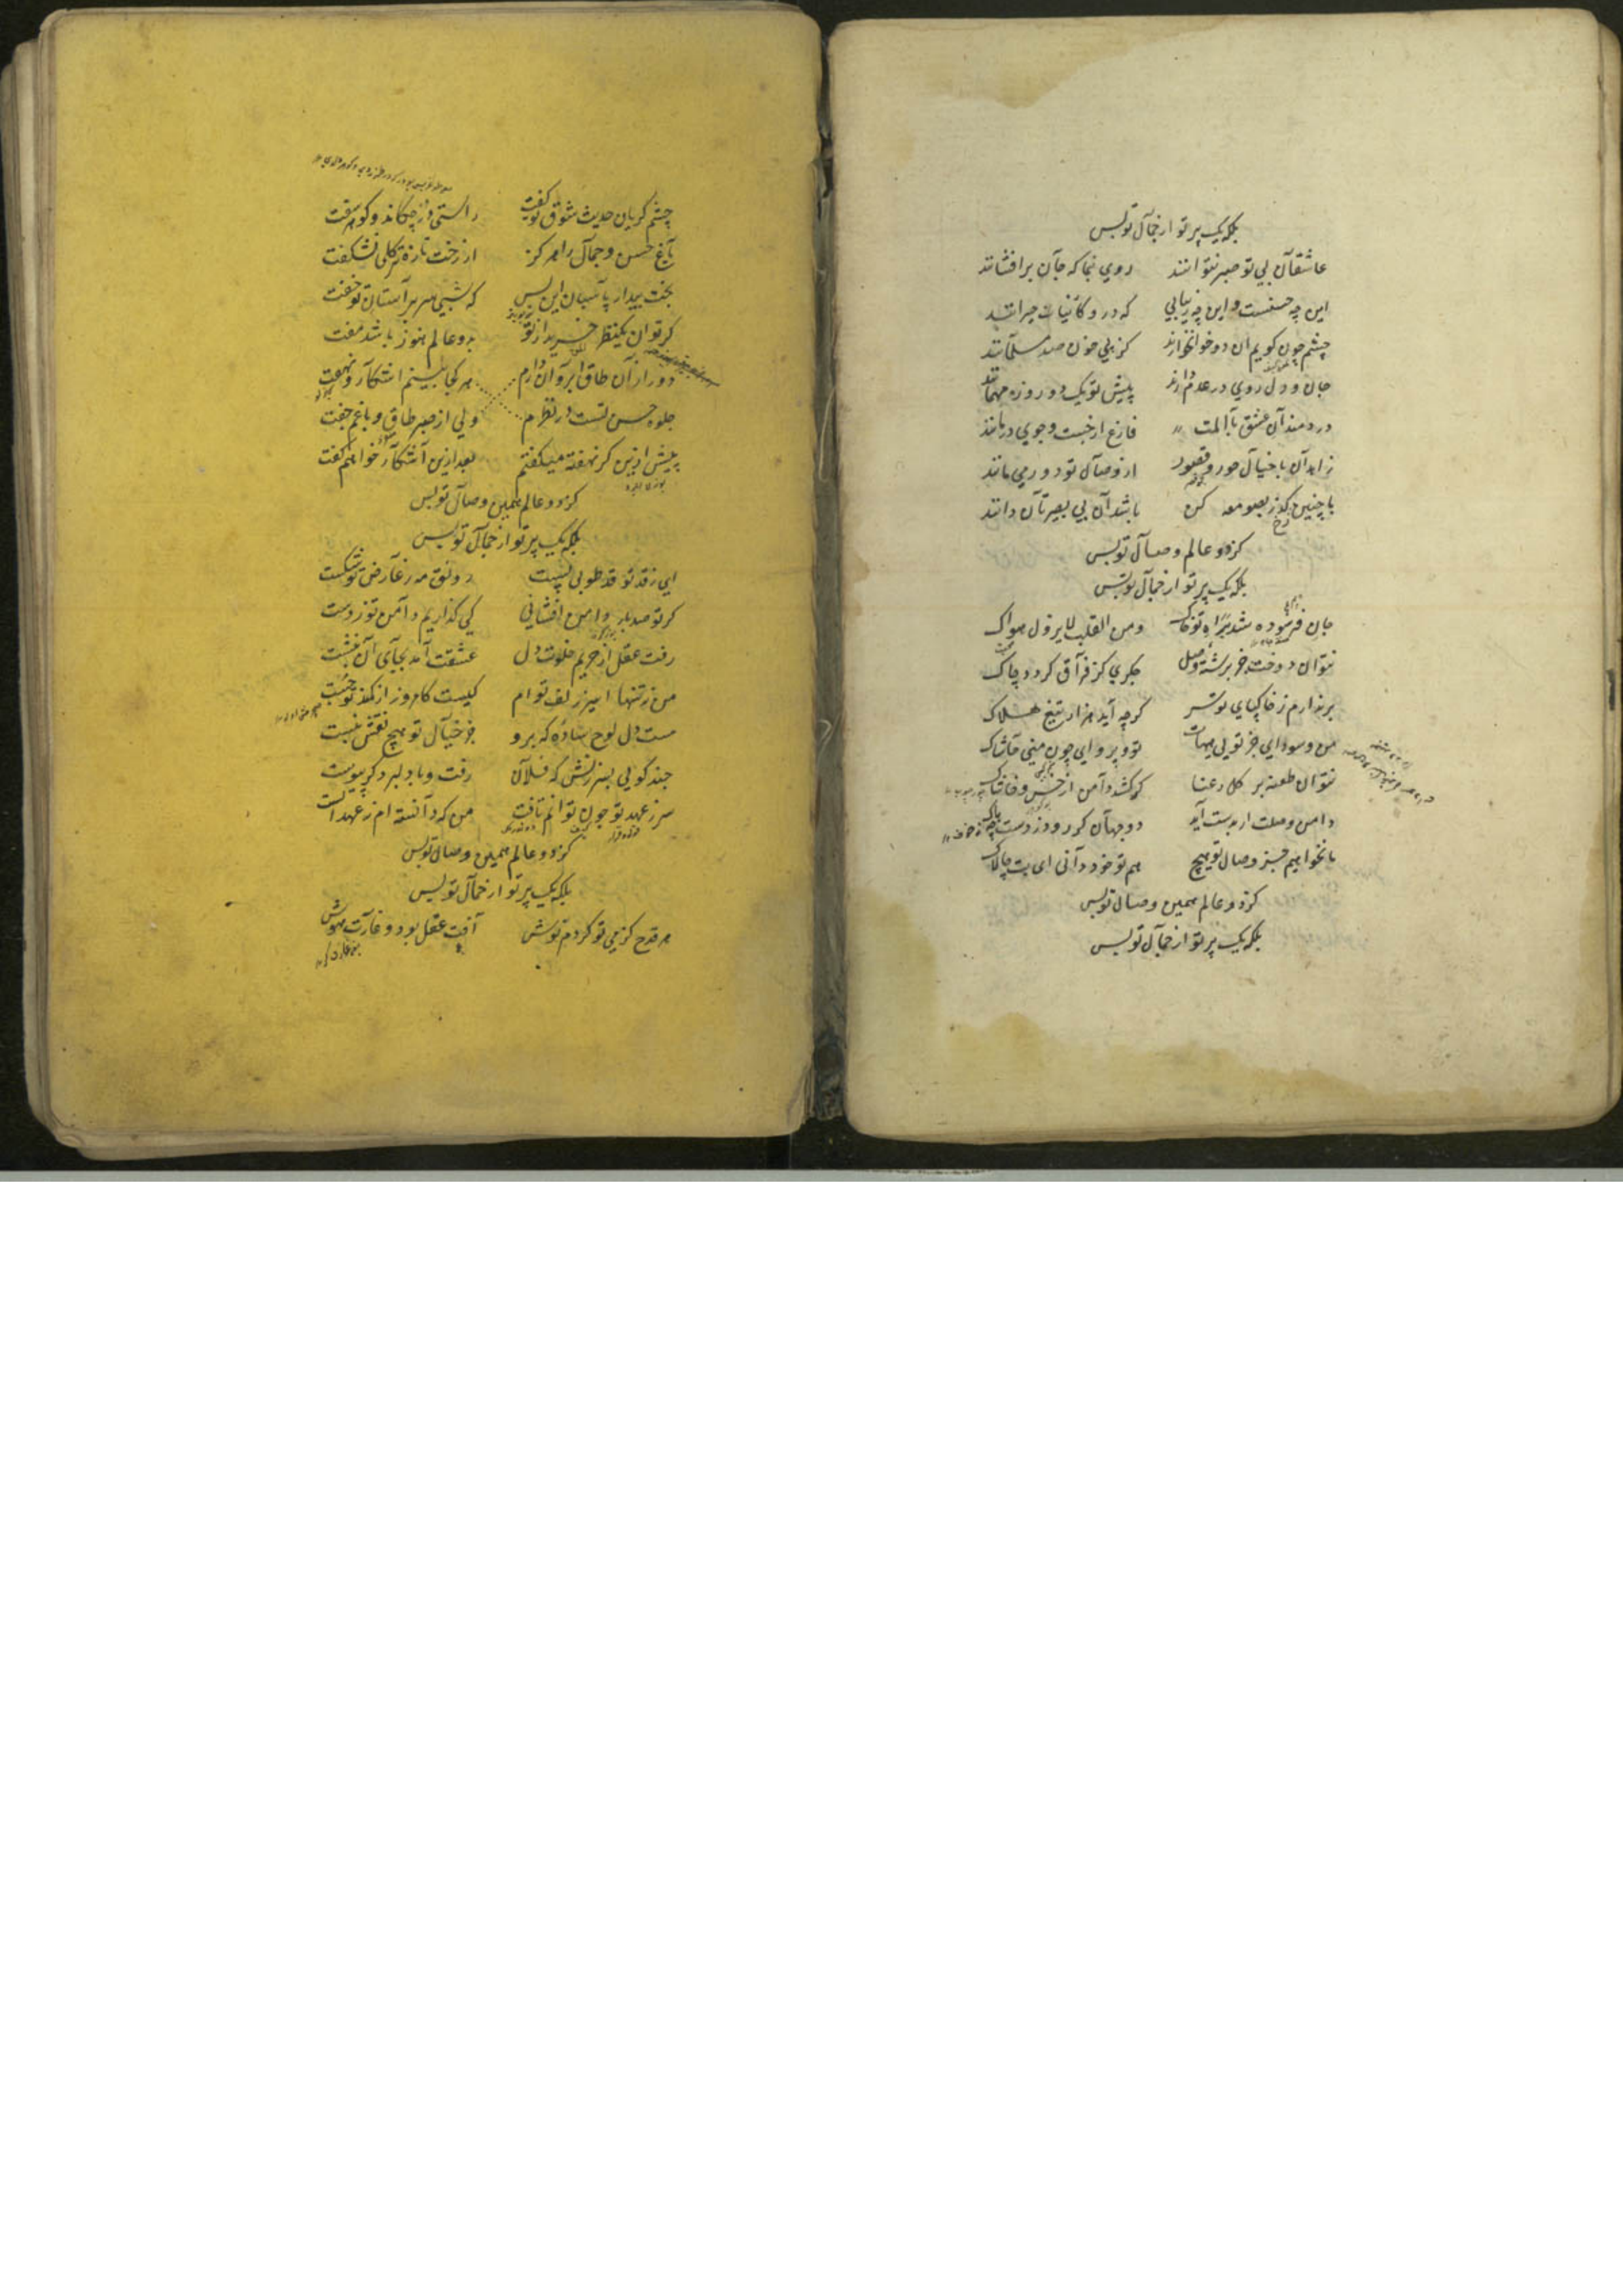 بلکه یک پرتو از جمال تو بس
عاشقان بی تو صبر نتوانند روی بنما که جان برافشانند
این چه حسنست و این چه زیبایی که درو کائنات حیرانند
چشم چون گویم آن دو خونخوارند کز پی خون صد مسلمانند
جان و دل روی در عدم دارند پیش تو یک دو روزه مهمانند
دردمندان عشق با المت فارغ از جست و جوی درمانند
زاهدان با خیال حور و قصور از وصال تو دور می مانند
با چنین رخ گذر بصومعه کن باشد آن بی بصیرتان دانند
کز دو عالم وصال تو بس
بلکه یک پرتو از جمال تو بس
جان فرسوده شد براه تو خاک ومن القلب لا یزول هواک
نتوان دوخت جز برشته وصل جگری کز فراق گردد چاک
برندارم ز خاکپای تو سر گرچه آید هزار تیغ هلاک
من و سودایی جز تویی هیهات تو و پروایی چون منی حاشاک
نتوان طعنه بر گل رعنا گر کشد دامن از خس و خاشاک
دامن وصلت ار بدست آید دو جهان گر رود ز دست چه باک
ما نخواهیم جز وصال تو هیچ هم تو خود دانی ای بت چالاک
کز دو عالم همین وصال تو بس
بلکه یک پرتو از جمال تو بس
چشم گریان حدیث شوق تو گفت راستی در چکاند و گوهر سفت
باغ حسن و جمال را هرگز از رخت تازه تر گلی نشکفت
بخت بیدار پاسبان این بس که شبی سر بر آستان تو خفت
گر توان یک نظر خرید از تو بدو عالم هنوز باشد مفت
دور از آن طاق ابروان دارم هر کجا بینم آشکار و نهفت
جلوه حسن تست در نظرم ولی از صبر طاق و با غم جفت
پیش ازین گر نهفته میگفتم بعد ازین آشکار خواهم گفت
کز دو عالم همین وصال تو بس
بلکه یک پرتو از جمال تو بس
ای ز قد تو قد طوبی پست رونق مه ز عارض تو شکست
گر تو صد بار دامن افشانی کی گذاریم دامن تو ز دست
رفت عقل از حریم خلوت دل عشقت آمد بجای آن بنشست
من نه تنها اسیر زلف تو ام کیست کامروز از کمند تو جست
هست دل لوح ساده که برو جز خیال تو هیچ نقش نبست
چند گویی بسرزنش که فلان رفت و با دلبر دگر پیوست
سر ز عهد تو چون توانم تافت من که دانسته ام ز عهد الست
کز دو عالم همین وصال تو بس
بلکه یک پرتو از جمال تو بس
هر قدح کز می تو کردم نوش آفت عقل بود و غارت هوش